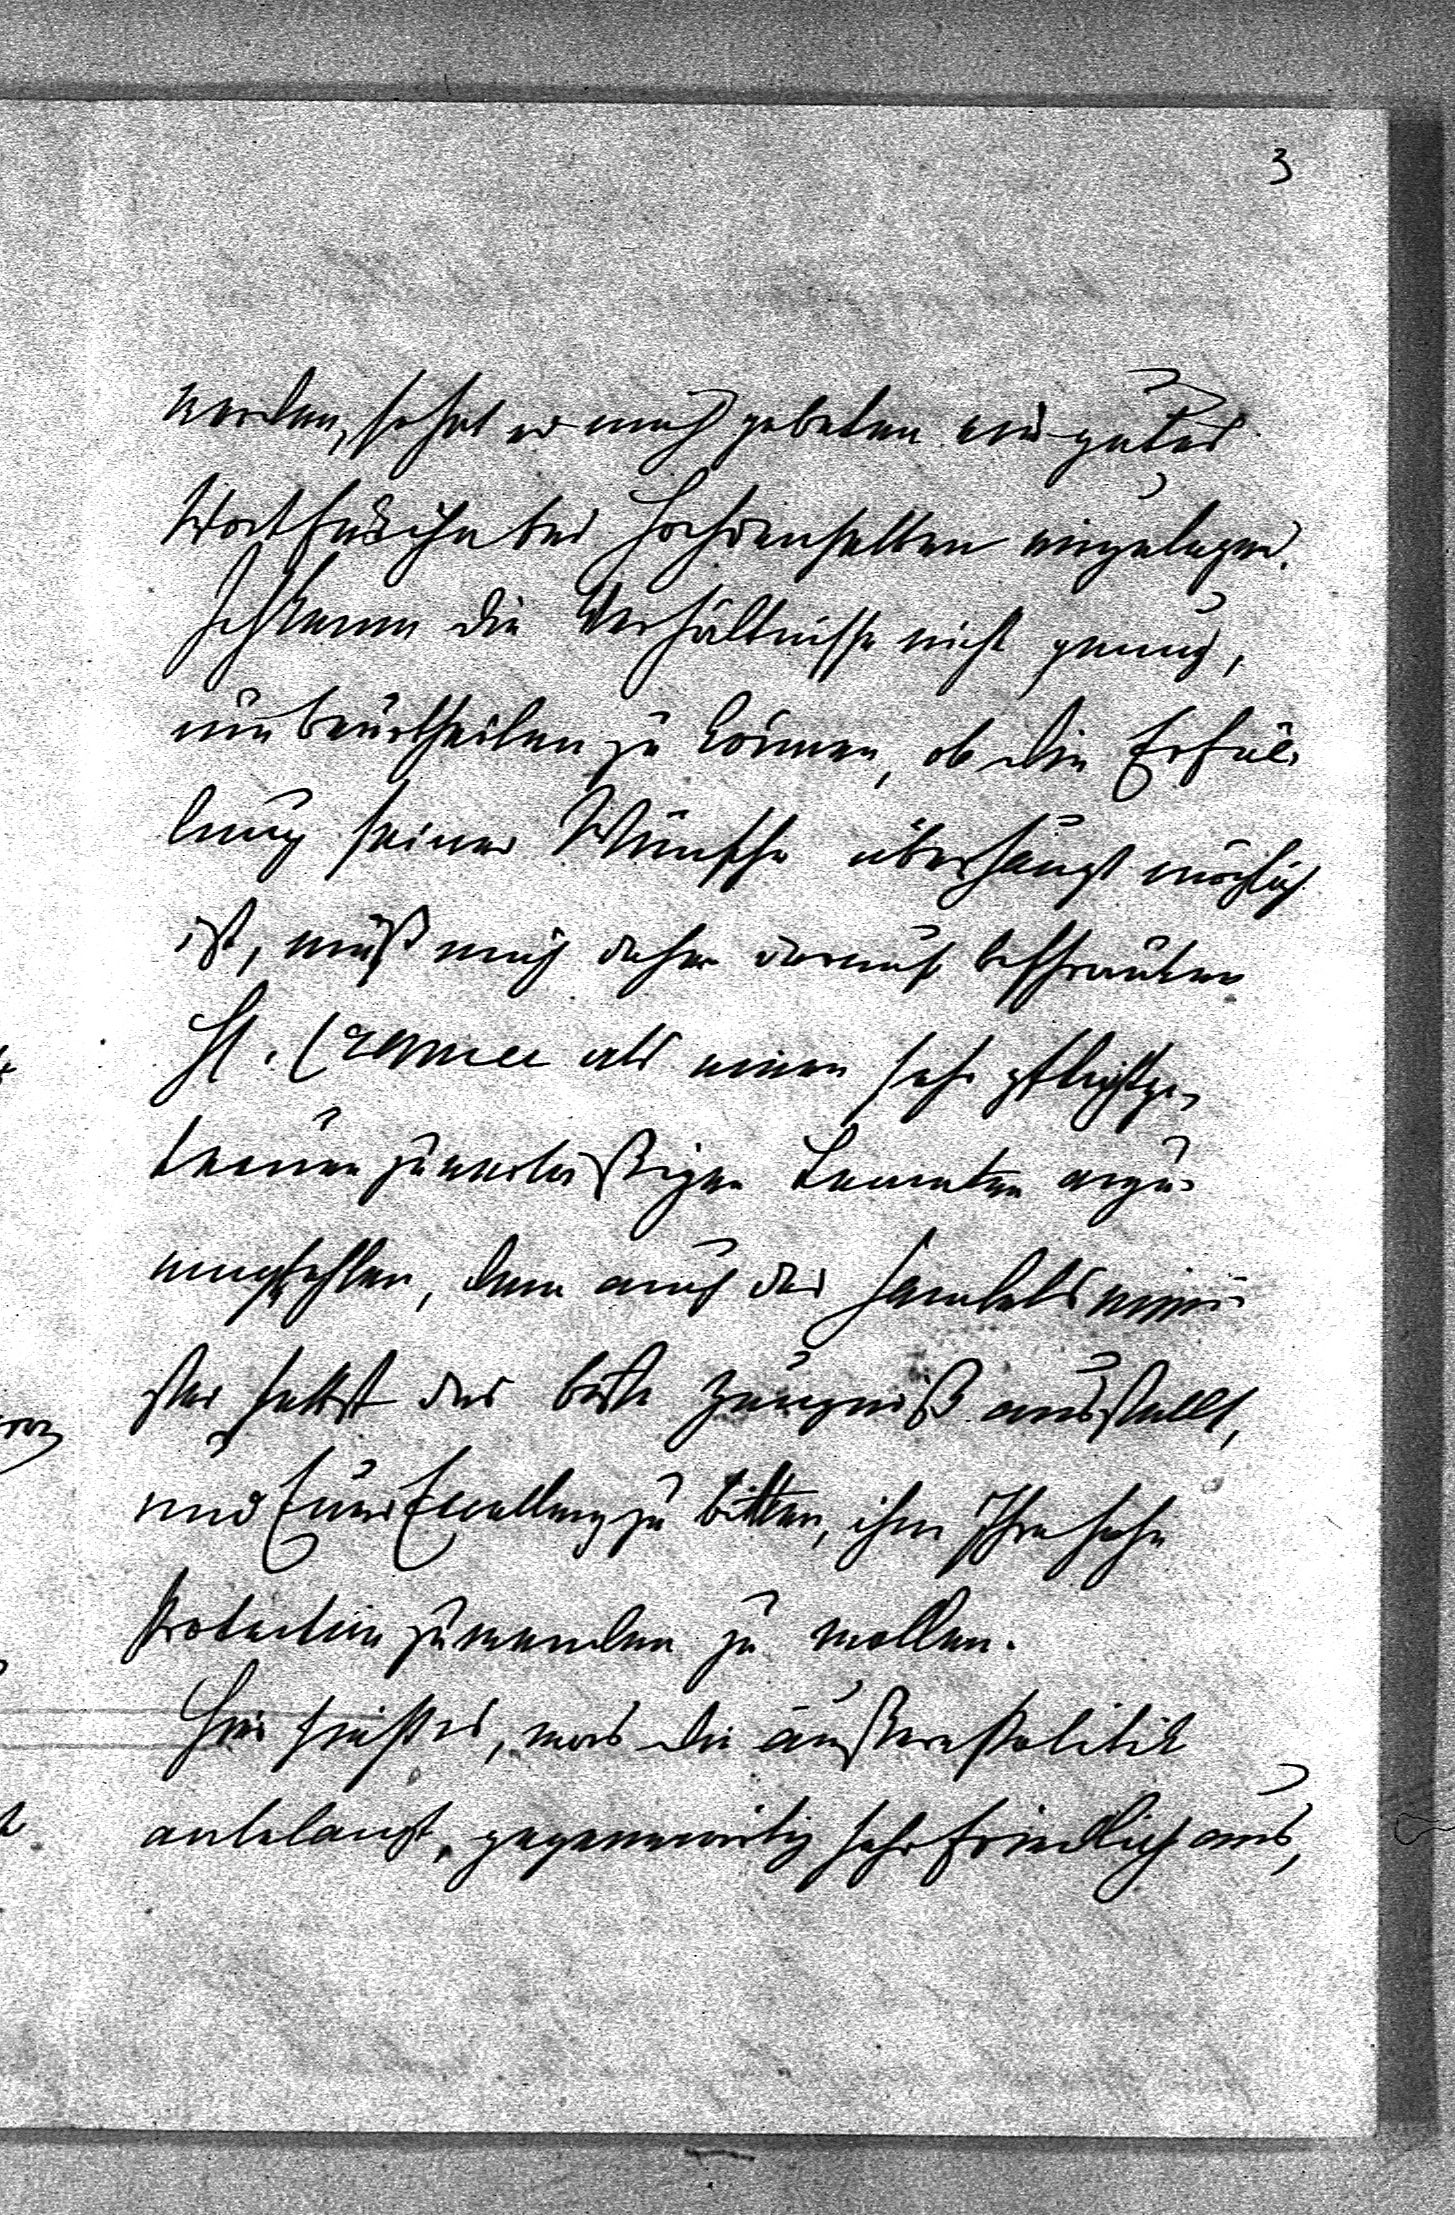 3
werden, so hat er mich gebeten ein gutes
Wort für ihn bei Hochdenselben einzulegen.
Ich kenne die Verhältnisse nicht genug,
um beurtheilen zu können, ob die Erfül-
lung seiner Wünsche überhaupt möglich
ist, muß mich daher darauf beschränken
H. als einen sehr pflichtge-
treuen zuverläßigen Beamten anzu-
empfehlen, dem auch der Handelsmini-
ster selbst das beste Zeugniß ausstellt,
und Euer Excellenz zu bitten, ihm Ihre hohe
Protection zuwenden zu wollen.
Hier sieht es, was die äußere Politik
anbelangt, gegenwärtig sehr friedlich aus,